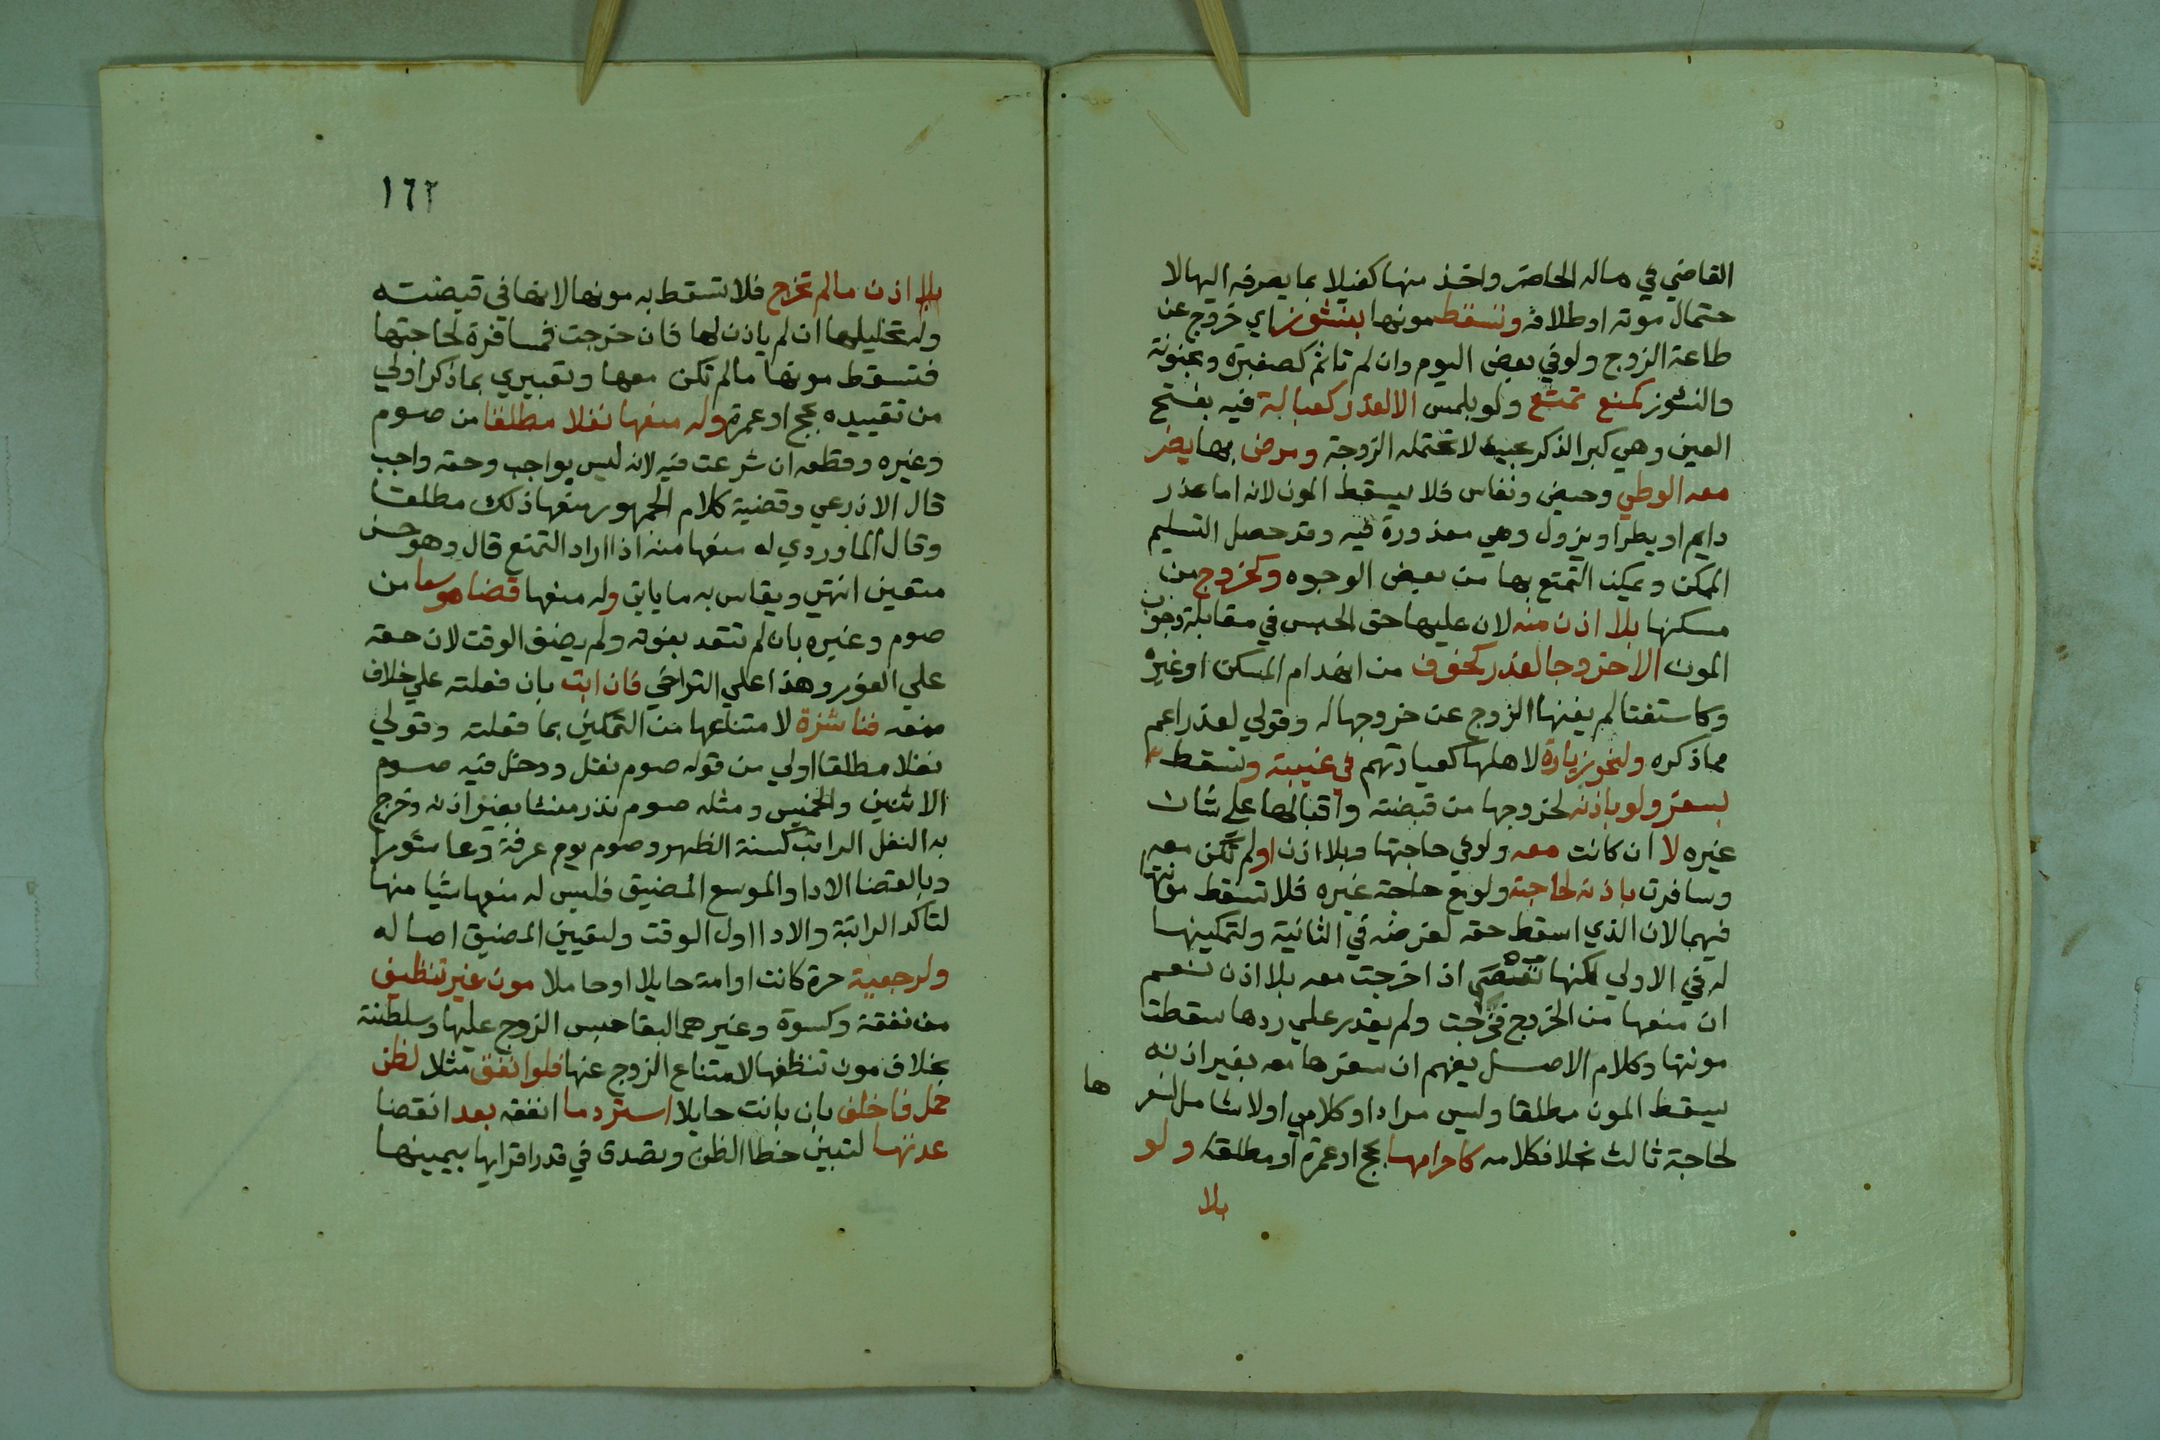 القاضي في ماله الحاضر واخذ منها كفيلا بما يصرفه اليها لا
حتمال موته او طلاقه وتسقط مونها بنشوز اي خروج عن
طاعة الزوج ولو في بعض اليوم وان لم تاثم كصغيرة ومجنونة
والنشوز كمنع تمتع ولو بلمس الا لعذر كعبالة فيه بفتح
العين وهي كبر الذكر بحيث لا تحتمله الزوجة ومرض بها يضر
معه الوطي وحيض ونفاس فلا يسقط المون لانه اما عذر
دايم او يطرا ويزول وهي معذورة فيه وقد حصل التسليم
الممكن ويمكن التمتع بها من بعض الوجوه وكخروج من
مسكنها بلا اذن منه لان عليها حق الحبس في مقابلة وجوب
المون الا خروجا لعذر كخوف من انهدام المسكن او غيره
وكاستفتا لم يغنها الزوج عن خروجها له وقولي لعذر اعم
مما ذكره ولنحو زيارة لاهلها كعيادتهم في غيبته وتسقط
بسفر ولو باذنه لخروجها من قبضته واقبالها على شان
غيره لا ان كانت معه ولو في حاجتها وبلا اذن او لم تكن معه
وسافرت باذنه لحاجته ولو مع حاجة غيره فلا تسقط مونتها
فيهما لان الذي اسقط حقه لغرضه في الثانية ولتمكينها
له في الاولى لكنها تعصي اذا خرجت معه بلا اذن نعم
ان منعها من الخروج فخرجت ولم يقدر على ردها سقطت
مونتها وكلام الاصل يفهم ان سفرها معه بغير اذنه
يسقط المون مطلقا وليس مرادا وكلامي اولا شامل لسفر
ها
لحاجة ثالث بخلاف كلامه كاحرامها بحج او عمرة او مطلقا ولو
بلا
١٦٢
بلا اذن مالم تخرج فلا تسقط به مونها لانها في قبضته
وله تحليلها ان لم ياذن لها فان خرجت فمسافرة لحاجتها
فتسقط مونها مالم تكن معها وتعبيري بما ذكر اولي
من تقييده بحج او عمرة وله منعها نفلا مطلقا من صوم
وغيره وقطعه ان شرعت فيه لانه ليس بواجب وحقه واجب
قال الاذرعي وقضية كلام الجمهور منعها ذلك مطلقا
وقال الماوردي له منعها منه اذا اراد التمتع قال وهو حسن
متعين انتهى ويقاس به ما ياتي وله منعها قضا موسعا من
صوم وغيره بان لم تتعد بفوته ولم يضق الوقت لان حقه
علي الفور وهذا علي التراخي فان ابت بان فعلته علي خلاف
منعه فناشزة لامتناعها من التمكين بما فعلته وقولي
نفلا مطلقا اولي من قوله صوم نفل ودخل فيه صوم
الاثنين والخميس ومثله صوم نذر منشا بغير اذنه وخرج
به النفل الراتب كسنة الظهر وصوم يوم عرفة وعاشورا
وبالقضا الادا والموسع المضيق فليس له منعها شيا منها
لتاكد الراتبة والادا اول الوقت ولتعيين المضيق اصاله
ولرجعية حرة كانت او امة حايلا او حاملا مون غير تنظيف
من نفقة وكسوة وغيرهما لبقا حبس الزوج عليها وسلطنته
بخلاف مون تنظفها لامتناع الزوج عنها فلو انفق مثلا لظن
حمل فاخلف بان بانت حايلا استرد ما انفقه بعد انقضا
عدتها لتبين خطا الظن وتصدق في قدر اقرايها بيمينها